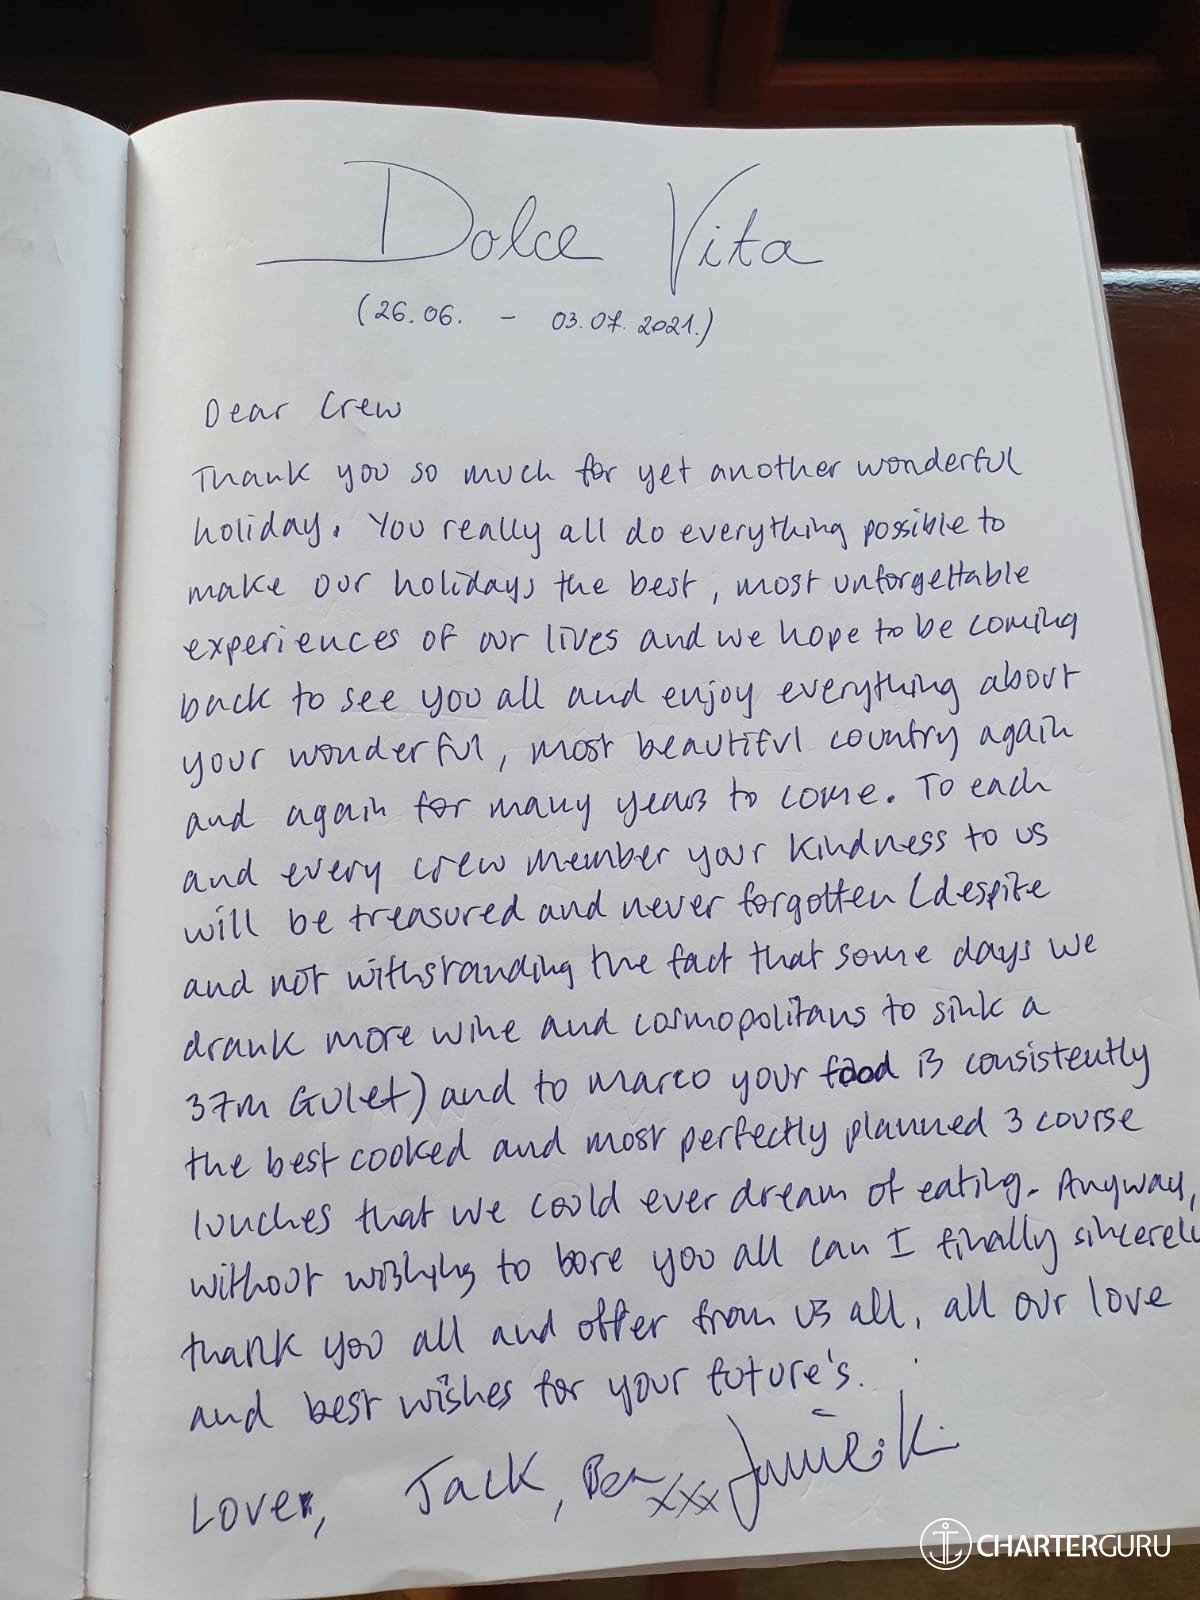 Dolce Vita
(26.06. - 03.07.2021.)
Dear Crew
Thank you so much for yet another wonderful
holiday. You really all do everything possible to
make our holidays the best, most unforgettable
experiences of our lives and we hope to be coming
back to see you all and enjoy everything about
your wonderful, most beautiful country again
and again for many years to come. To each
and every crew member your kindness to us
will be treasured and never forgotten (despite
and not withstanding the fact that some days we
drank more wine and cosmopolitans to sink a
37m Gulet) and to Marco your food is consistently
the best cooked and most perfectly planned 3 course
lunches that we could ever dream of eating. Anyway,
without wishing to bore you all can I finally sincerely
thank you all and offer from us all, all our love
and best wishes for your future's.
Love, Jack, Ben xxx
CHARTERGURU